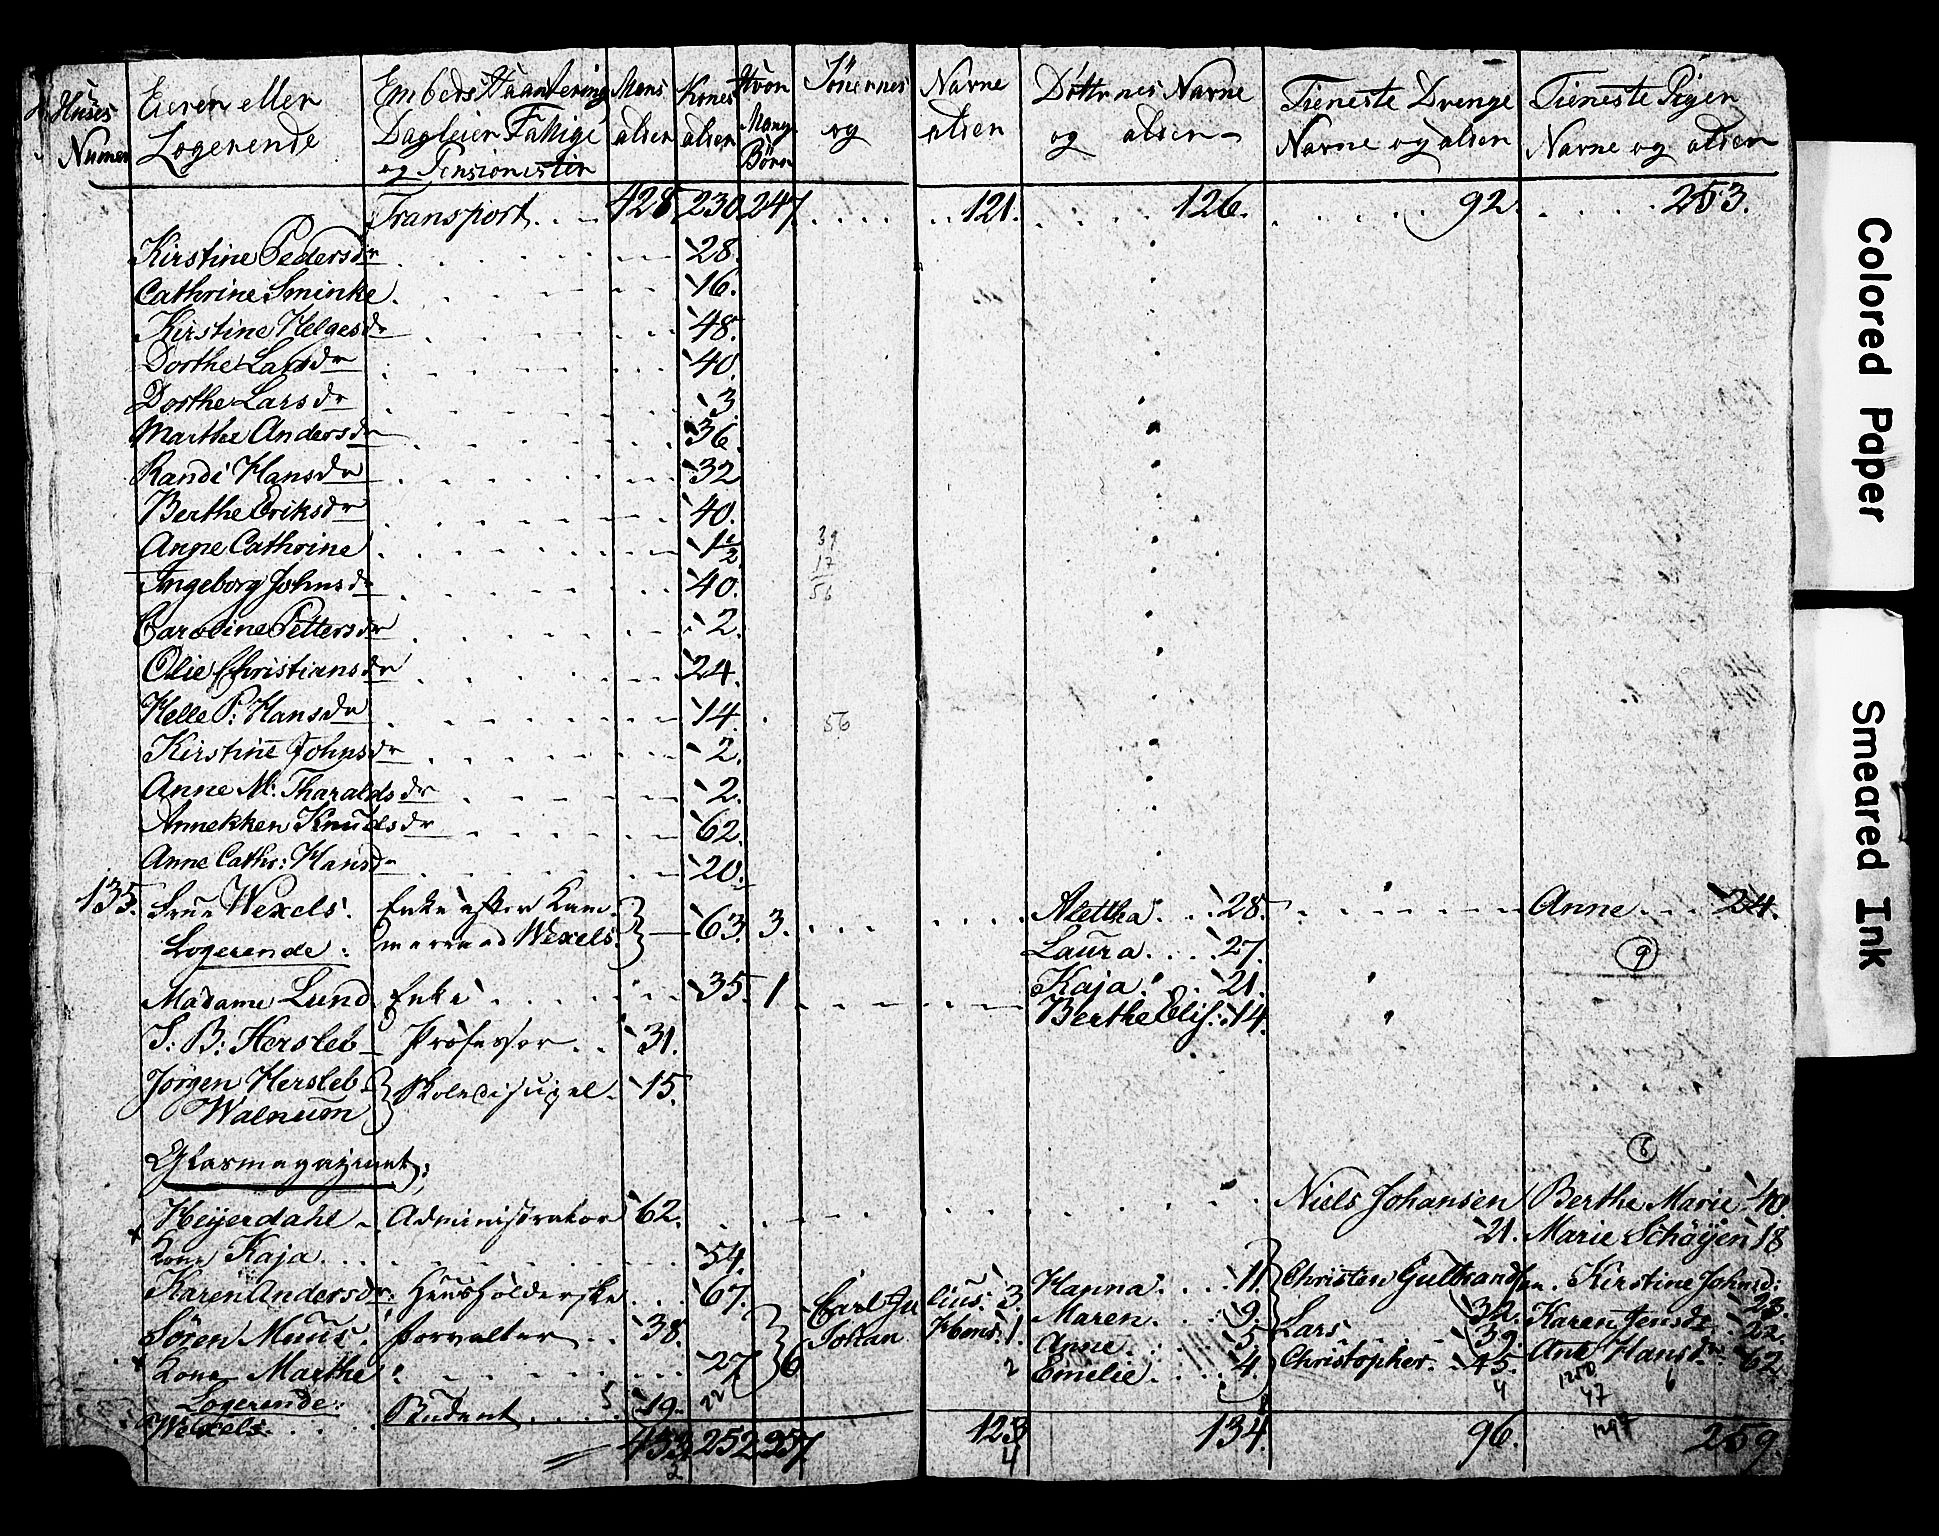 Huses Numer
Eieren eller Logerende
Embeds Haantering Dagleier Fattige og Pensionister
Mans alder
Kones alder
Hvor Mange Børn
Sønernes Navne og alder
Døttrnes Navne og alder
Tieneste Drenge Navne og alder
Tieneste Piger Navne og alder
Transport . . 428. 230. 247. . . . . 121. . . . 126. . . . 92. . . . 253.
Kirstine Pedersdr 28.
Cathrine Sminke. 16.
Kirstine Helgesdr 48.
Dorthe Larsdr 40.
Dorthe Larsdr 3
Marthe Andersdr 36
Randi Hansdr 32
Berthe Eriksdr 40.
Anne Cathrine 1 1/2
39
17
56
Ingeborg Johnsdr 40.
Caroline Pettersdr 2.
Olie Christiansdr 24.
Helle P: Hansdr 14.
56
Kirstine Johnsdr 2.
Anne M: Tharaldsdr 2.
Annekken Knudsdr 62.
Anne Cathr: Hansdr 20.
135. Frue Wexels. Enke efter Kam- 63. 3. Alettha. . . 28. Anne . . . 24.
Logerende: merraad Wexels. Laura. . . . 27. 9
Kaja. . . 21.
Madame Lund. Enke 35. 1 Berthe Elis: 14.
S: B: Hersleb Professor. . 31.
Jørgen Hersleb Skoledisipel. 15.
Walnum
Glasmagazinet; 6
Heyerdahl Administrator 62. Niels Johansen 21. Berthe Marie 40.
Marie Schøyen 18
Kone Kaja. . . 54.
Karen Andersdr: Huusholderske 67. Hanna. . . 11. Christen Gulbrandsen. 32. Kirstine Johnsd: 28.
Søren Muus. Forvalter . . 38. Carl Julius. 3. Maren . . . 9. Lars . . . 39. Karen Jensdr. 22.
Kone Marthe 27. 6 Johan Hans. 1. Anne . . 5. Christopher. 45. Ane Hansdr 62.
2 Emelie . . . 4. 4 1250 6
47
Logerende:
Wexels. Student . . . 5 19. 22
433 252 257 123 134. 96. 259.
2 4